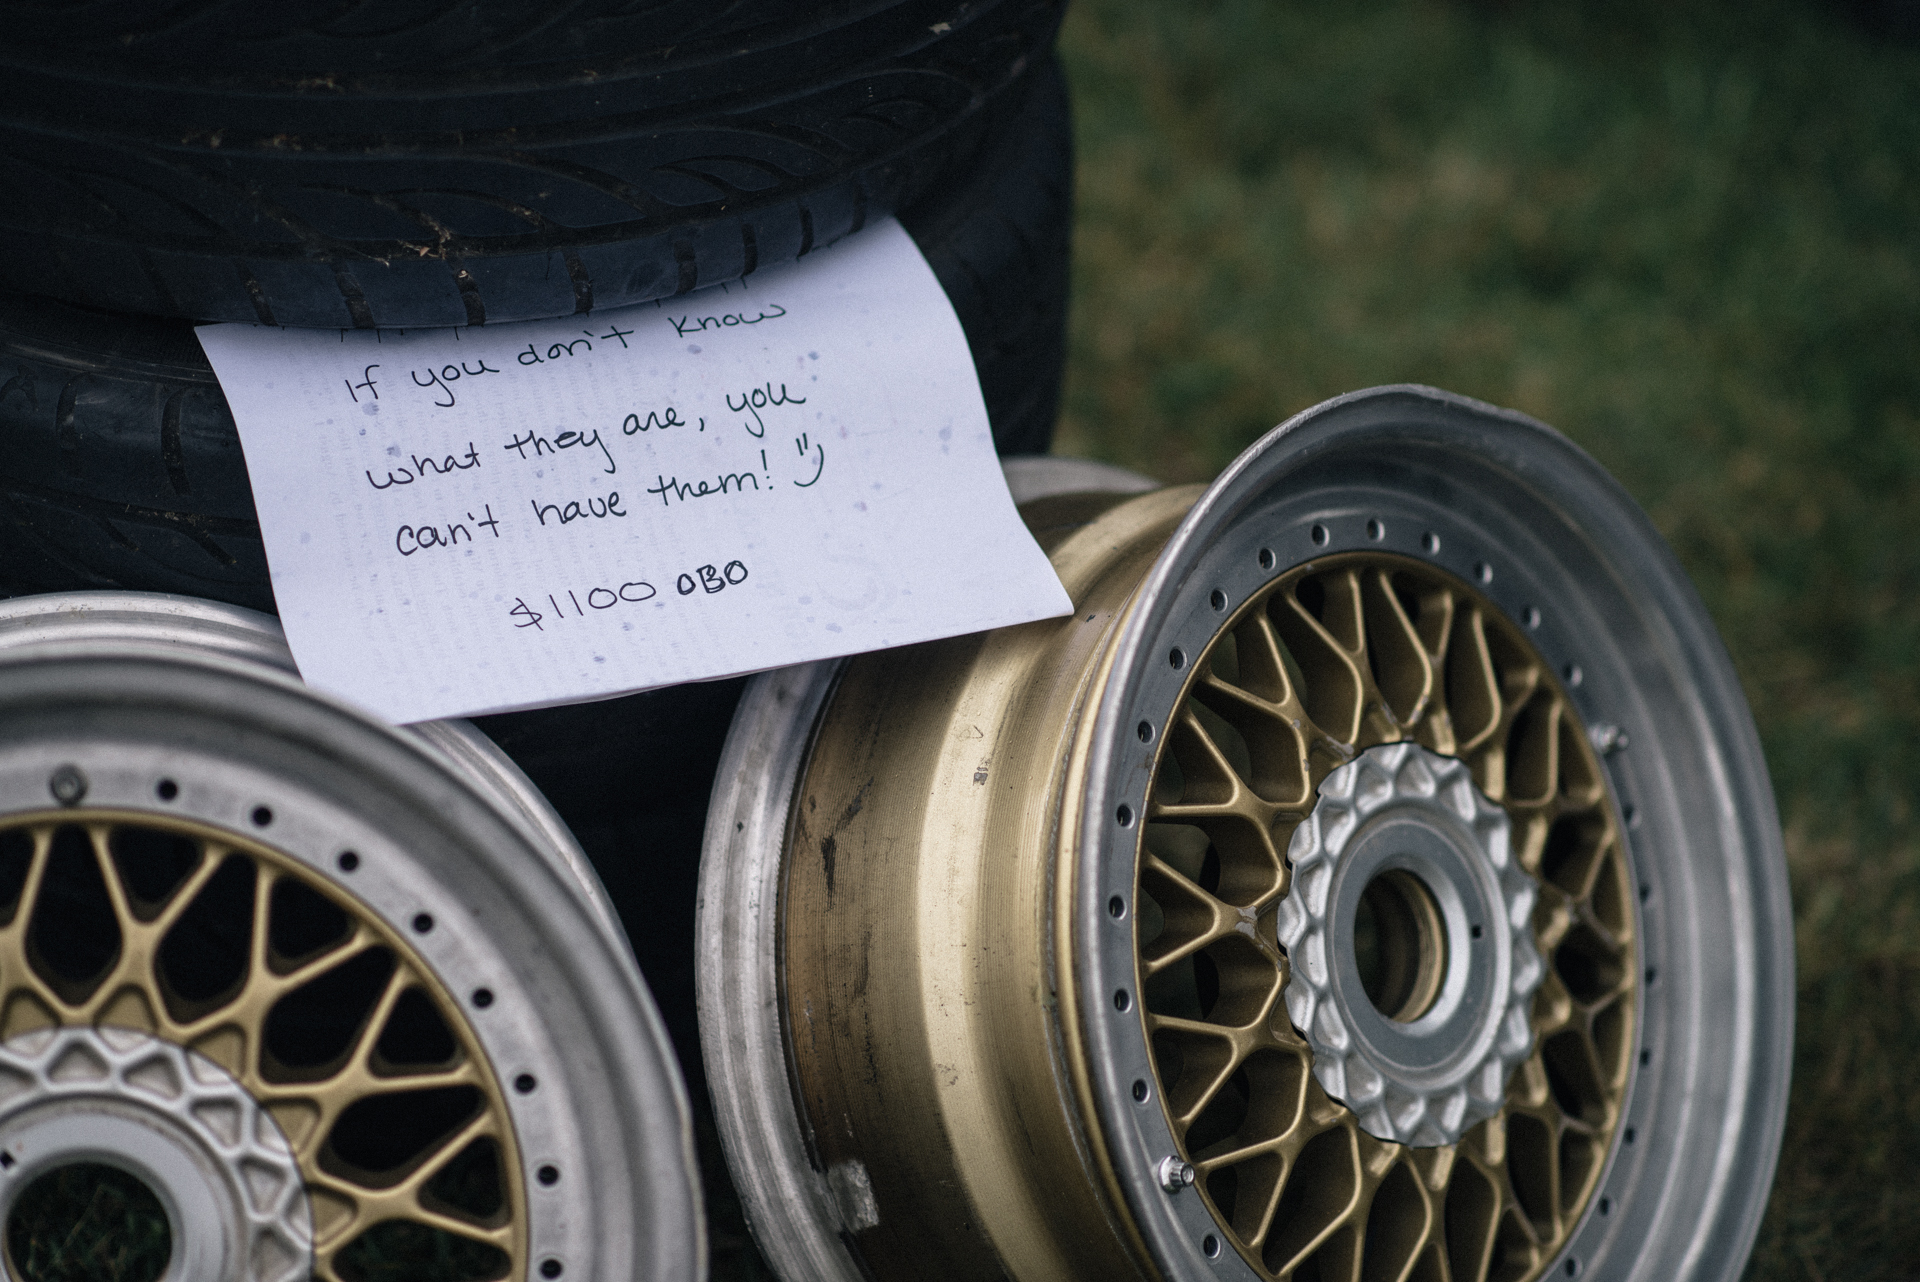 If you don't know
what they are, you
can't have them! :)
$1100 OBO